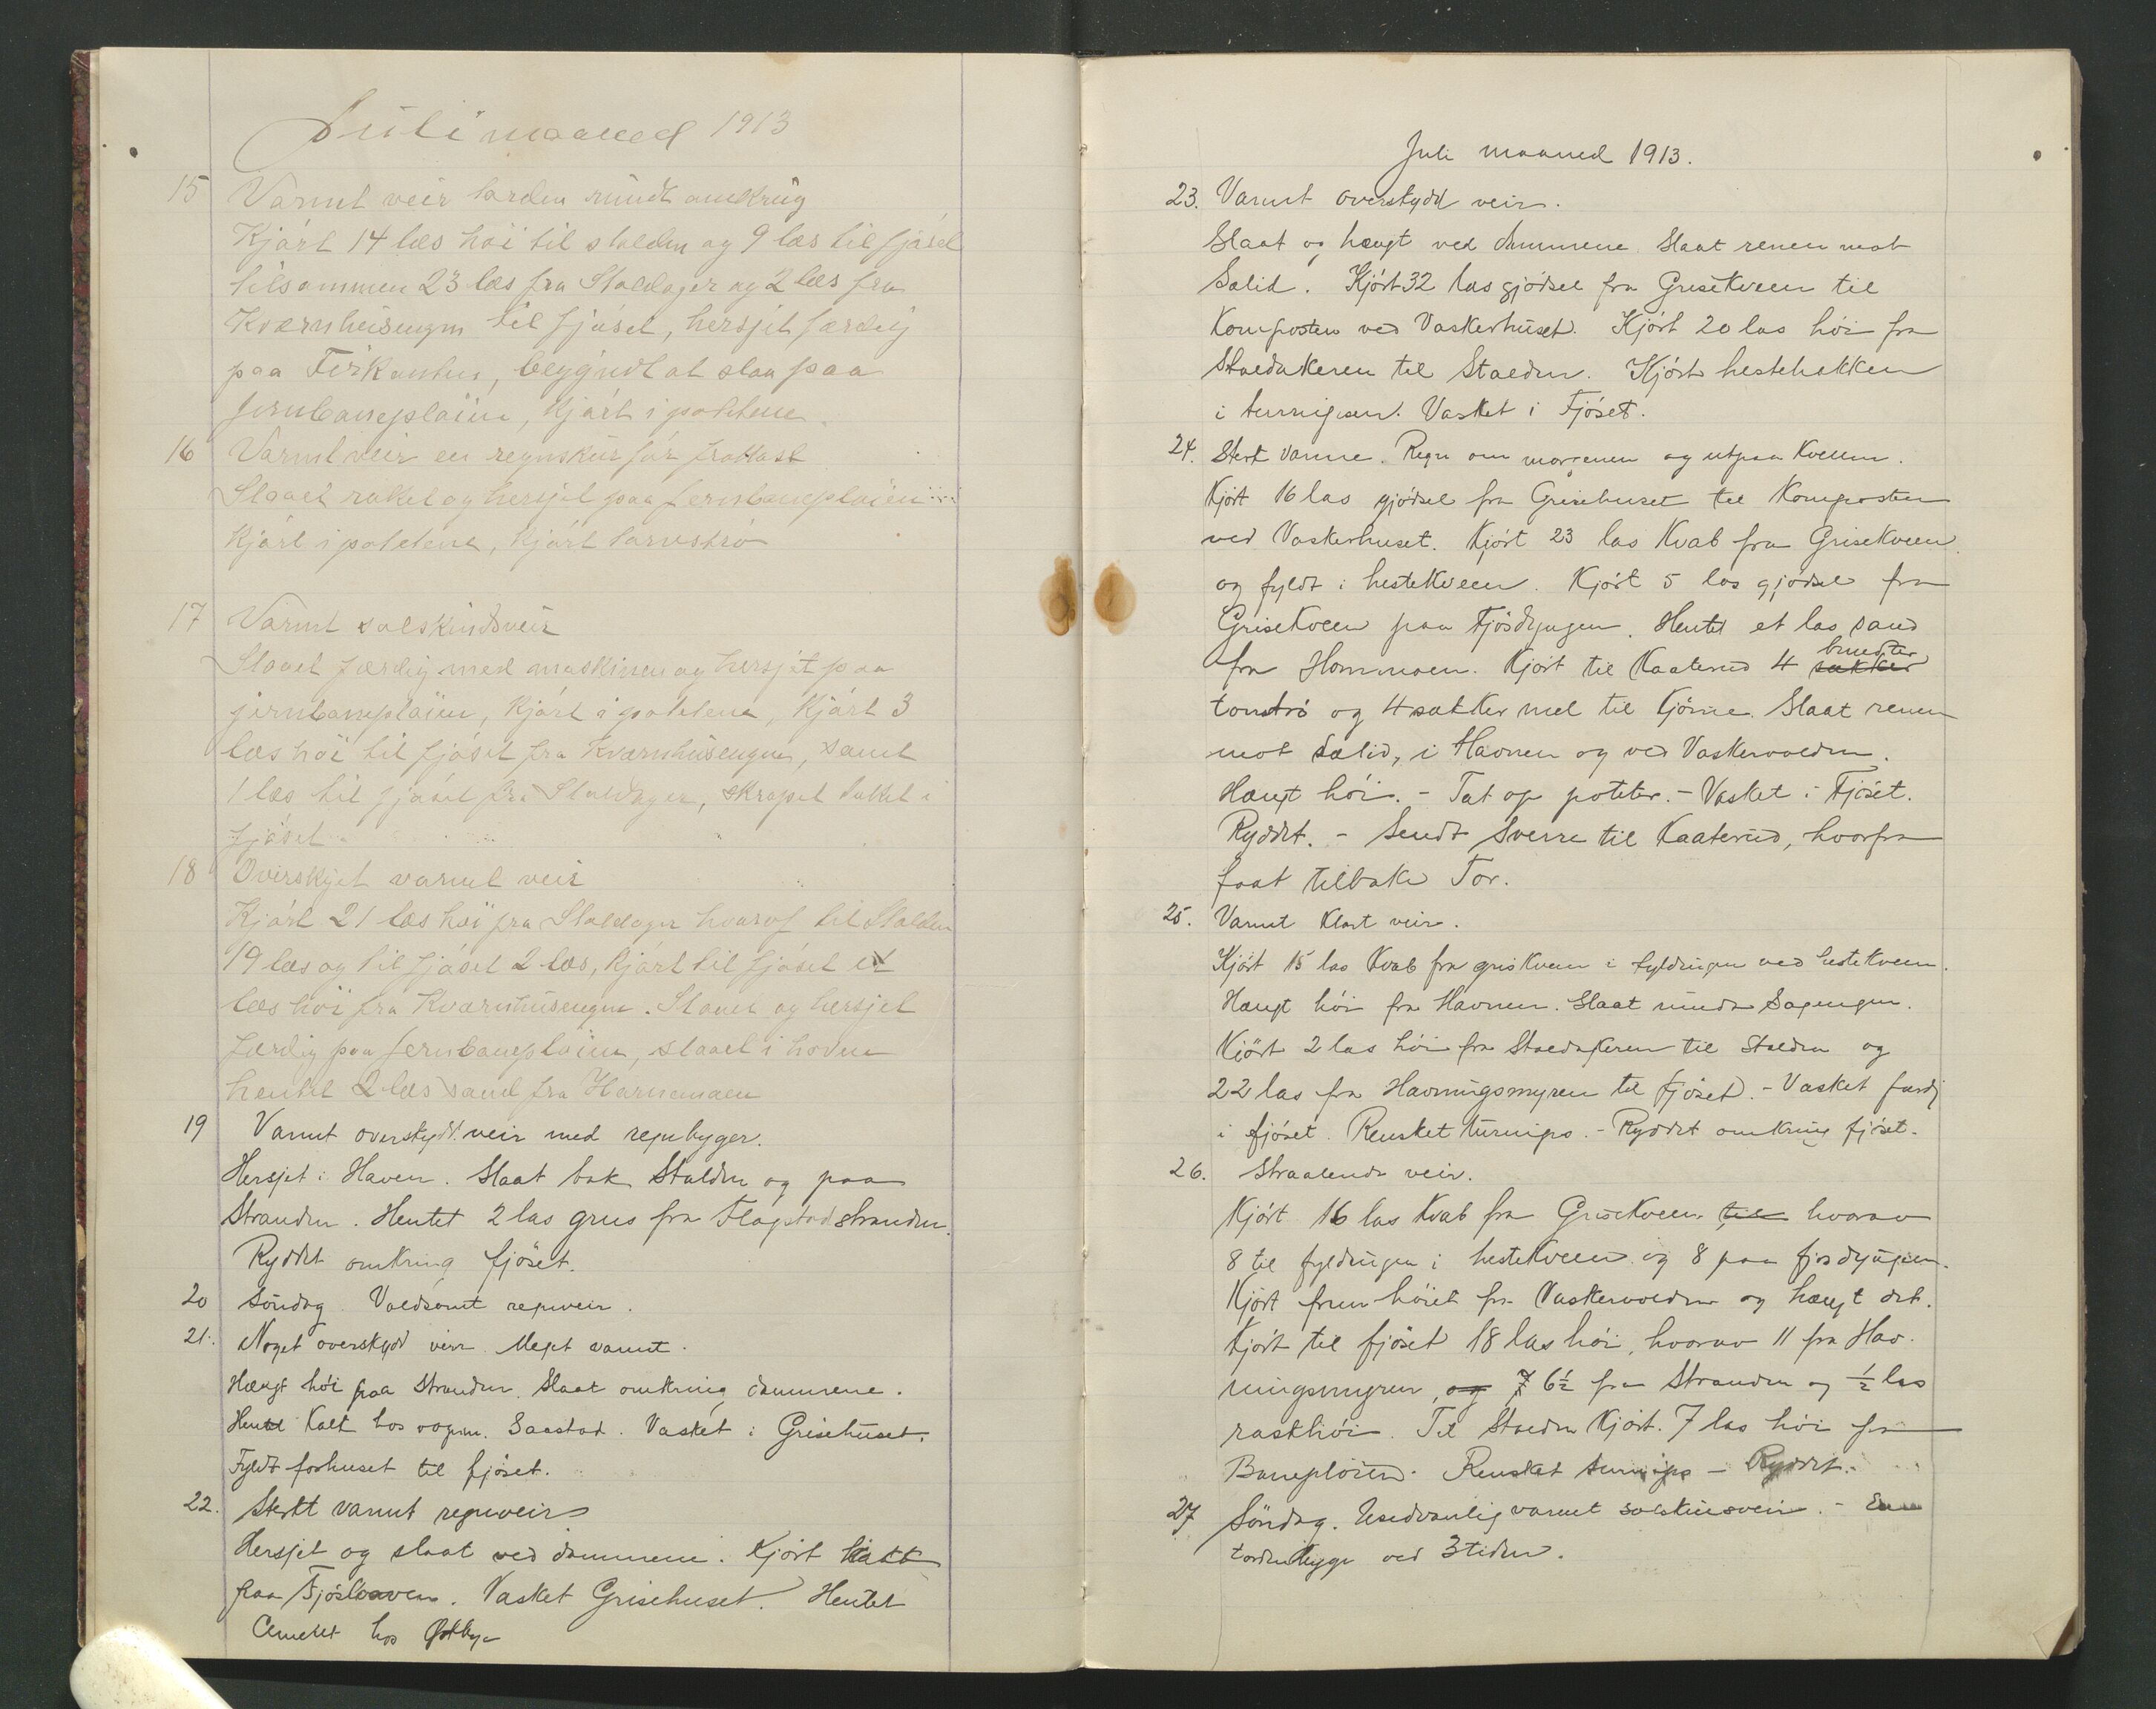 Juli maaned 1913
15 Varmt veir torden rundt omkring
Kjørt 14 læs höi til stalden og 9 læs til fjöset
tilsammen 23 læs fra Staldager og 2 læs fra
Kværnhusengen til fjöset, hersjet færdig
paa Firkanten, begyndt at slaa paa
jernbaneploien, kjört i potetene
16 Varmt veir en regnskur för frokost
Slaaet raket og hersjet paa Jernbaneploien
kjört i potetene, kjört
17 Varmt solskindsveir
Slaaet færdig med maskinen og hersjet paa
jernbaneploien, kjört i potetene, kjört 3
læs höi til fjöset fra Kværnhusengen, samt
1 læs til fjöset fra Staldager, skrapet taket i
fjöset
18 Overskjet varmt veir
Kjört 21 læs höi fra Staldager hvorof til Stalden
19 læs og til fjöset 2 læs, kjört til fjöset et
læs höi fra Kværnhusengen. Slaaet og hersjet
færdig paa Jernbaneploien, slaaet i hovne
hentet 2 læs sand fra
19 Varmt overskydd. veir med regnbyger.
Hersjet i Haven. Slaat bak Stalden og paa
Stranden. Hentet 2 las grus fra Flagstadstranden.
Ryddet omkring fjöset.
20 Söndag. Voldsomt regnveir.
21. Noget overskydd veir. Meget varmt.
Hængt höi paa Stranden. Slaat omkring dammene.
Hentet Kalk hos Saastad. Vasket i Grisehuset.
Fyldt forhuset til fjöset.
22. Sterkt varmt regnveir
Hersjet og slaat ved dammene. Kjört
paa Fjöslaaven. Vasket Grisehuset. Hentet
Cement hos Østbye
Juli maaned 1913.
23. Varmt overskydd veir.
Slaat og hængt ved dammene. Slaat renen mot
Solid. Kjört 32 las gjödsel fra Grisekveen til
Komposten ved Vaskerhuset. Kjört 20 las höi fra
Staldakeren til Stalden. Kjört hestehakken
i turnipsen. Vasket i Fjöset.
24. Sterk varme. Regn om morgenen og utpaa kvellen.
Kjört 16 las gjödsel fra Grisehuset til Komposten
ved Vaskerhuset. Kjört 23 las Kvab fra Grisekveen
og fyldt i hestekveen. Kjört 5 las gjödsel fra
Grisekveen paa Fjösdyngen. Hentet et las sand
fra Hommoen. Kjört til Kaaterud 4 sækker bundter
og 4 sækker mel til Kjörne. Slaat renen
mot Solid, i Havnen og ved Vaskervolden.
Hængt höi. - Tat op poteter. - Vasket i Fjöset.
Ryddet. - Sendt Sverre til Kaaterud, hvorfra
faat tilbake Tor.
25. Varmt klart veir.
Kjört 15 las Kvab fra griskveen i fyldningen ved hestekveen.
Hængt höi fra Havnen. Slaat rundt Sagengen.
Kjört 2 las höi fra Staldakeren til Stalden og
22 las fra Havningsmyren til fjöset. - Vasket færdi
i fjöset. Rensket turnips. - Ryddet omkring fjöset.
26. Straalende veir.
Kjört 16 las Kvab fra Grisekveen til hvorav
8 til fyldningen i hestekveen og 8 paa fjösdyngen.
Kjört frem höiet fra Vaskervolden og hængt det.
Kjört til fjöset 18 las höi, hvorav 11 fra Hav-
ningsmyren, og 7 6½ fra Stranden og ½ las
raskhöi. Til Stalden kjört 7 las höi fra
Baneploien. Rensket turnips - Ryddet.
27 Söndag. Usedvanlig varmt solskinsveir. - En
tordenbyge ved 3 tiden.